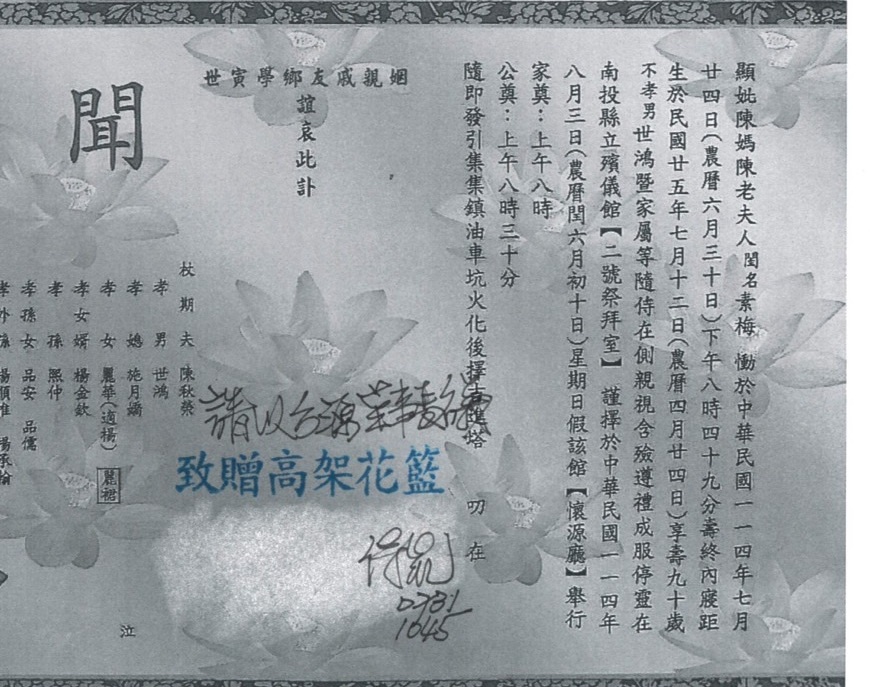 顯妣陳媽陳老夫人閨名素梅 慟於中華民國一一四年七月
廿四日(農曆六月三十日)下午八時四十九分壽終內寢距
生於民國廿五年七月十二日(農曆四月廿四日)享壽九十歲
不孝男世鴻暨家屬等隨侍在側親視含殮遵禮成服停靈在
南投縣立殯儀館【二號祭拜室】 謹擇於中華民國一一四年
八月三日(農曆閏六月初十日)星期日假該館【懷源廳】舉行
家奠:上午八時
公奠:上午八時三十分
隨即發引集集鎮油車坑火化後擇 塔 叨在
姻親戚友鄉學寅世
誼哀此訃
聞
杖期夫 陳秋榮
孝男 世鴻
孝媳 施月嬌
孝女 麗華(適楊) 麗裙
孝女婿 楊金欽
孝孫 熙仲
孝孫女 品安 品儒
孝外孫
泣
請以台灣
致贈高架花籃
0731
1045